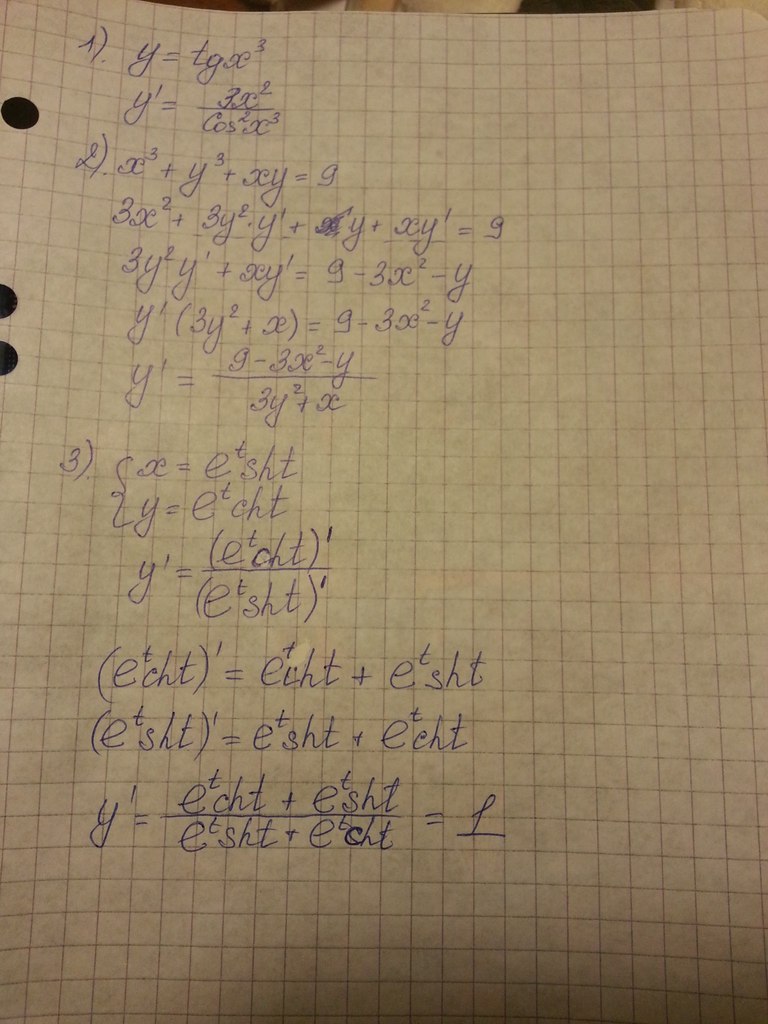 1). y = tgx³
y' = 3x² / cos²x³
2). x³ + y³ + xy = 9
3x² + 3y²·y' + y + xy' = 9
3y²y' + xy' = 9 - 3x² - y
y' (3y² + x) = 9 - 3x² - y
y' = (9 - 3x² - y) / (3y² + x)
3). { x = eᵗsht
y = eᵗcht
y' = (eᵗcht)' / (eᵗsht)'
(eᵗcht)' = eᵗcht + eᵗsht
(eᵗsht)' = eᵗsht + eᵗcht
y' = (eᵗcht + eᵗsht) / (eᵗsht + eᵗcht) = 1